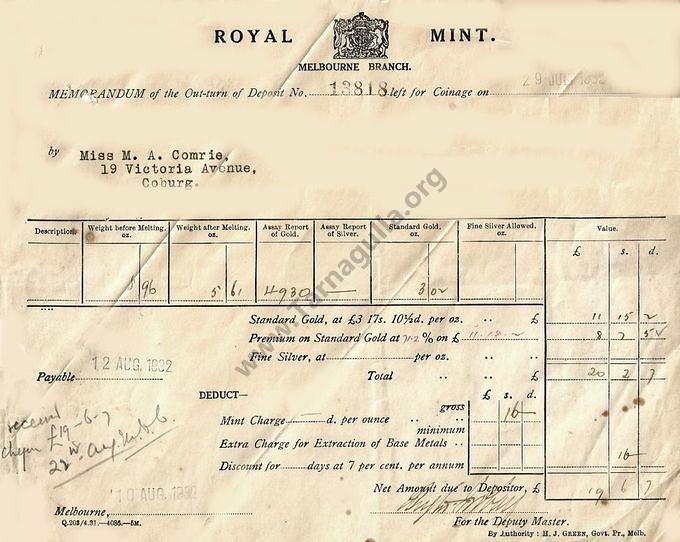 ROYAL MINT.
MELBOURNE BRANCH.
MEMORANDUM of the Out-turn of Deposit No. 13818 left for Coinage on 29 JUL 1932
by Miss M. A. Comrie,
19 Victoria Avenue,
Coburg.
Description Weight before Melting. oz. Weight after Melting. oz. Assay Report of Gold. Assay Report of Silver. Standard Gold. oz. Fine Silver Allowed. oz. Value.
£ s. d.
5 96 5 61 4930 — 3 02
Standard Gold, at £3 17s. 10½d. per oz. .. £ 11 15 2
Premium on Standard Gold at 71.2 % on £ 11.15.2 8 7 5
Fine Silver, at per oz. ..
12 AUG. 1932
Payable
Total .. £ 20 2 7
DEDUCT—
£ s. d.
Mint Charge — d. per ounce gross minimum 16 -
Extra Charge for Extraction of Base Metals .. 16 -
Discount for days at 7 per cent. per annum
received
cheque £19-6-7
22nd Aug
10 AUG. 1932
Net Amount due to Depositor, £ 19 6 7
Melbourne,
For the Deputy Master.
Q.203/4.31.—4086.—5M.
By Authority: H. J. GREEN, Govt. Pr., Melb.
www.Tarnagulla.org